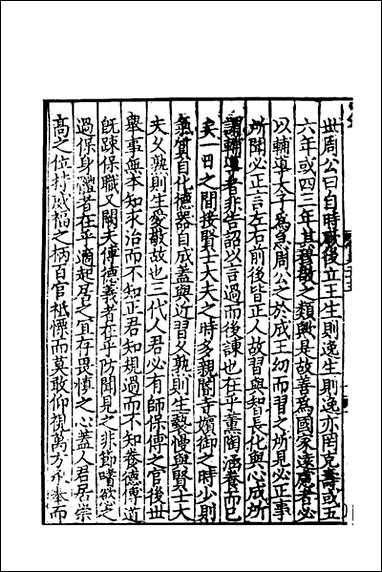 世周公曰自時厥後立王生則逸生則逸亦罔克壽或五
六年或四三年其穆敬之類與是故善為國家遠慮者必
以輔導太子為急周公之於成王幼而習之所見必正事
所聞必正言左右前後皆正人故習與智長化與心成所
謂輔導者非告詔以言過而後諫也在乎薰陶涵養而已
矣一日之間接賢士大夫之時多親閹寺嬪御之時少則
氣質自化德器自成蓋與近習久熟則生褻慢與賢士大
夫久熟則生愛敬故也三代人君必有師保傅之官後世
舉事無本知求治而不知正君知規過而不知養德傅道
既踈保職又闕夫傅德義者在乎防聞見之非節嗜慾之
過保身體者在乎適起居之宜存畏慎之心蓋人君居崇
高之位持威福之柄百官祗慄而莫敢仰視萬方承奉而